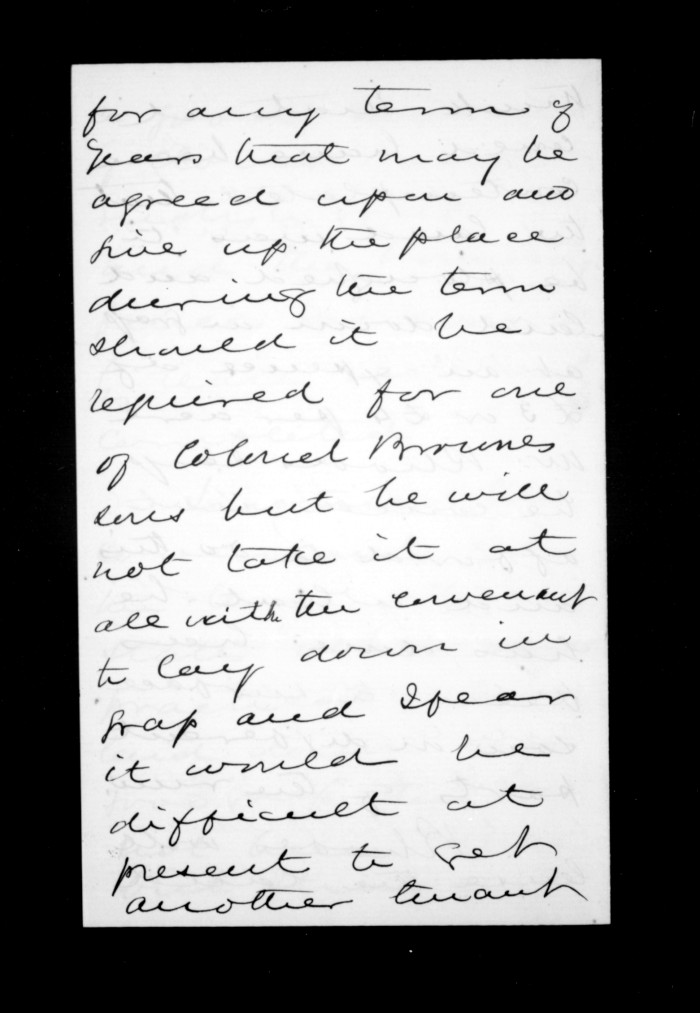 for any term of
years that may be
agreed upon and
give up the place
during the term
should it be
required for one
of Colonel Brownes
sons but he will
not take it at
all with the covenant
to lay down in
grap and I fear
it would be
difficult at
present to get
another tenant